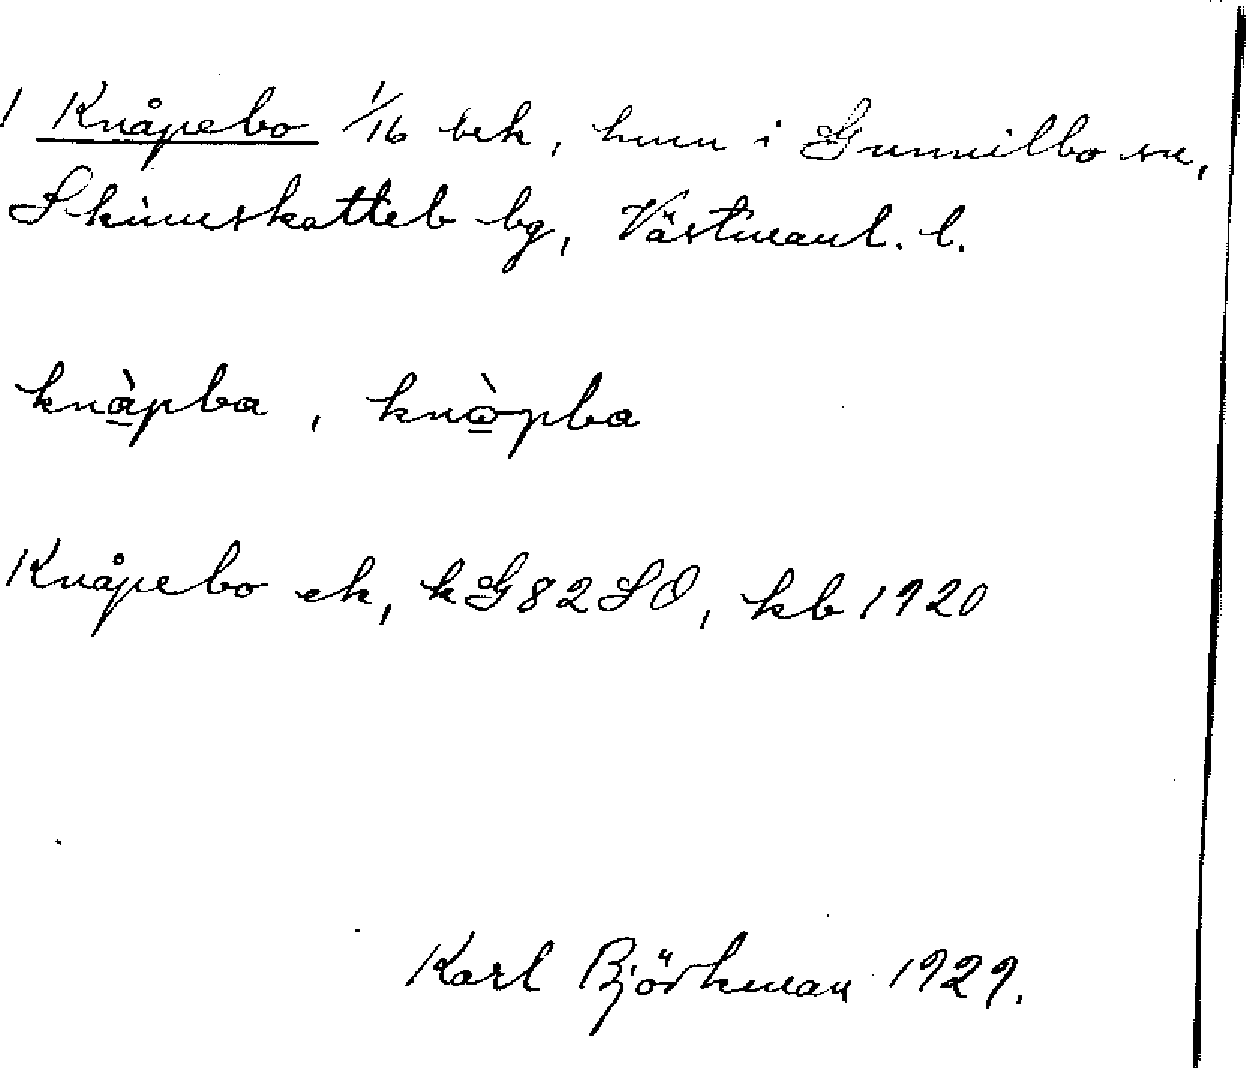 1 Knåpebo 1/16 bek, hmn i Gunnilbo sn,
Skinnskatteb bg, Västmanl. l.
knàpba, knòpba
Knåpebo ek, kG82SO, kb 1920
Karl Björkman 1929.